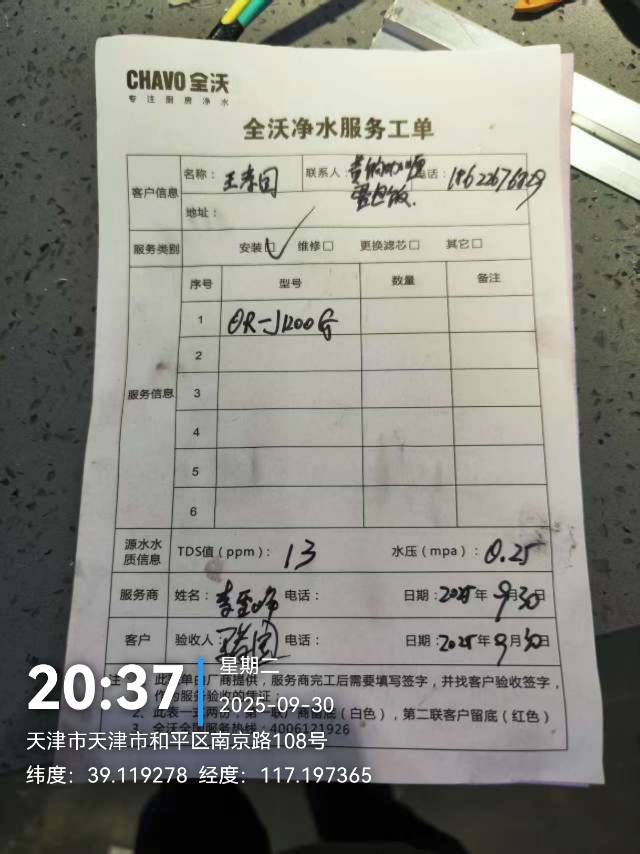 CHAVO 全沃
专注厨房净水
全沃净水服务工单
客户信息
名称：
联系人：
蛋包饭.
电话：
地址：
服务类别
安装☑ 维修□ 更换滤芯□ 其它□
服务信息
序号 型号 数量 备注
1 QR-J1200G
2
3
4
5
6
源水水质信息
TDS值（ppm）： 13 水压（mpa）： 0.25
服务商 姓名： 电话： 日期：2025年9月30日
客户 验收人： 电话： 日期：2025年9月30日
单由厂商提供，服务商完工后需要填写签字，并找客户验收签字，
作为服务验收的凭证；
2、此表一式两份，第一联厂商留底（白色），第二联客户留底（红色）
3、全沃全国服务热线：4006121926
20:37
星期二
2025-09-30
天津市天津市和平区南京路108号
纬度：39.119278 经度：117.197365